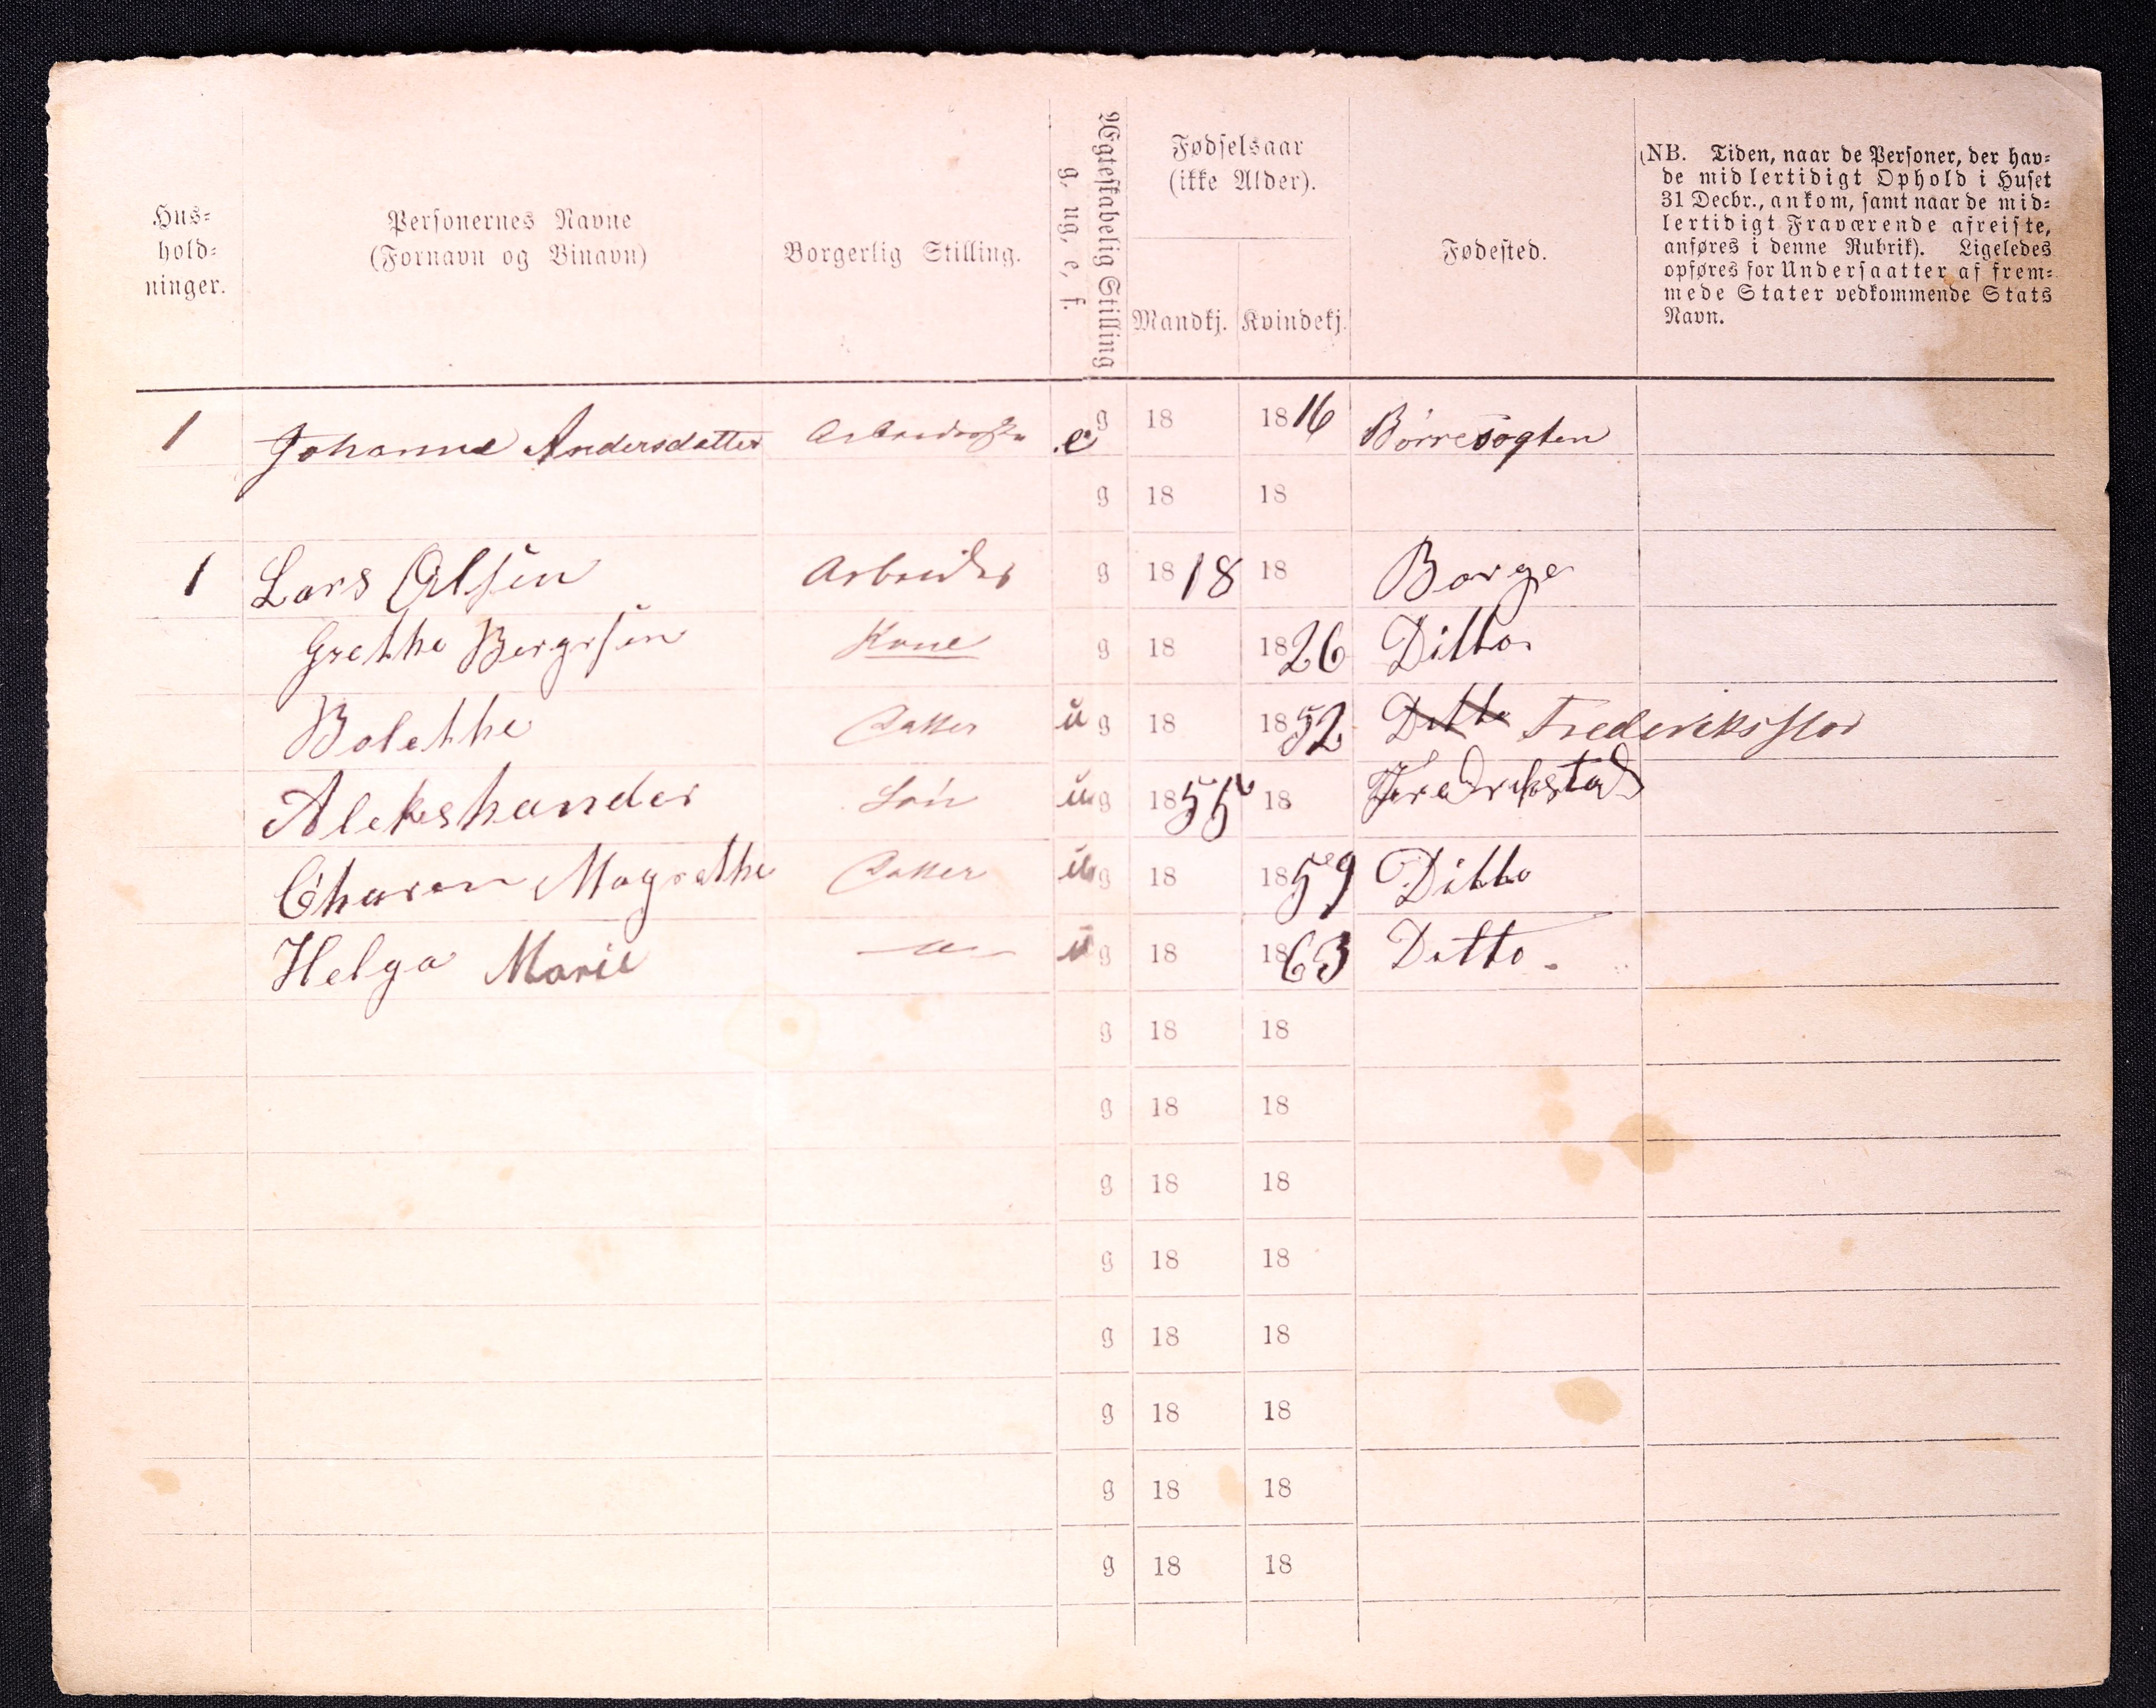 Hus-
hold-
ninger.
Personernes Navne
(Fornavn og Binavn)
Borgerlig Stilling.
Ægteskabelig Stilling
g, ug, e, f.
Fødselsaar
(ikke Alder).
Mandkj. Kvindekj.
Fødested.
(NB. Tiden, naar de Personer, der hav-
de midlertidigt Ophold i Huset
31 Decbr., ankom, samt naar de mid-
lertidigt Fraværende afreiste,
anføres i denne Rubrik). Ligeledes
opføres for Undersaatter af frem-
mede Stater vedkommende Stats
Navn.
1 Johanne Andersdatter e g 18 1816
g 18 18
1 Lars Olsen Arbeider g 1818 18 Borge
Grethe Bergersen Kone g 18 1826 Ditto
Bolethe Datter u g 18 1852 Ditto Frederiksstad
Alekshander Søn u g 1855 18 Fredrikstad
Charen Magrethe Datter u g 18 1859 Ditto
Helga Marie —"— u g 18 1863 Ditto.
g 18 18
g 18 18
g 18 18
g 18 18
g 18 18
g 18 18
g 18 18
g 18 18